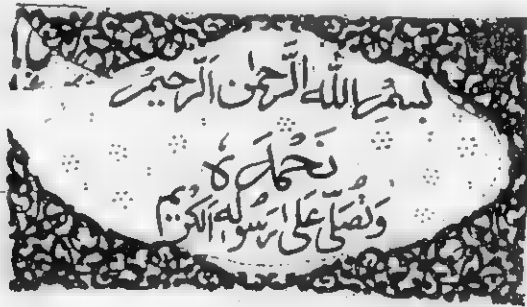 بِسْمِ اللَّهِ الرَّحْمٰنِ الرَّحِيْمِ
نَحْمَدُهٗ
وَنُصَلِّیْ عَلٰی رَسُوْلِهِ الْكَرِيْمِ